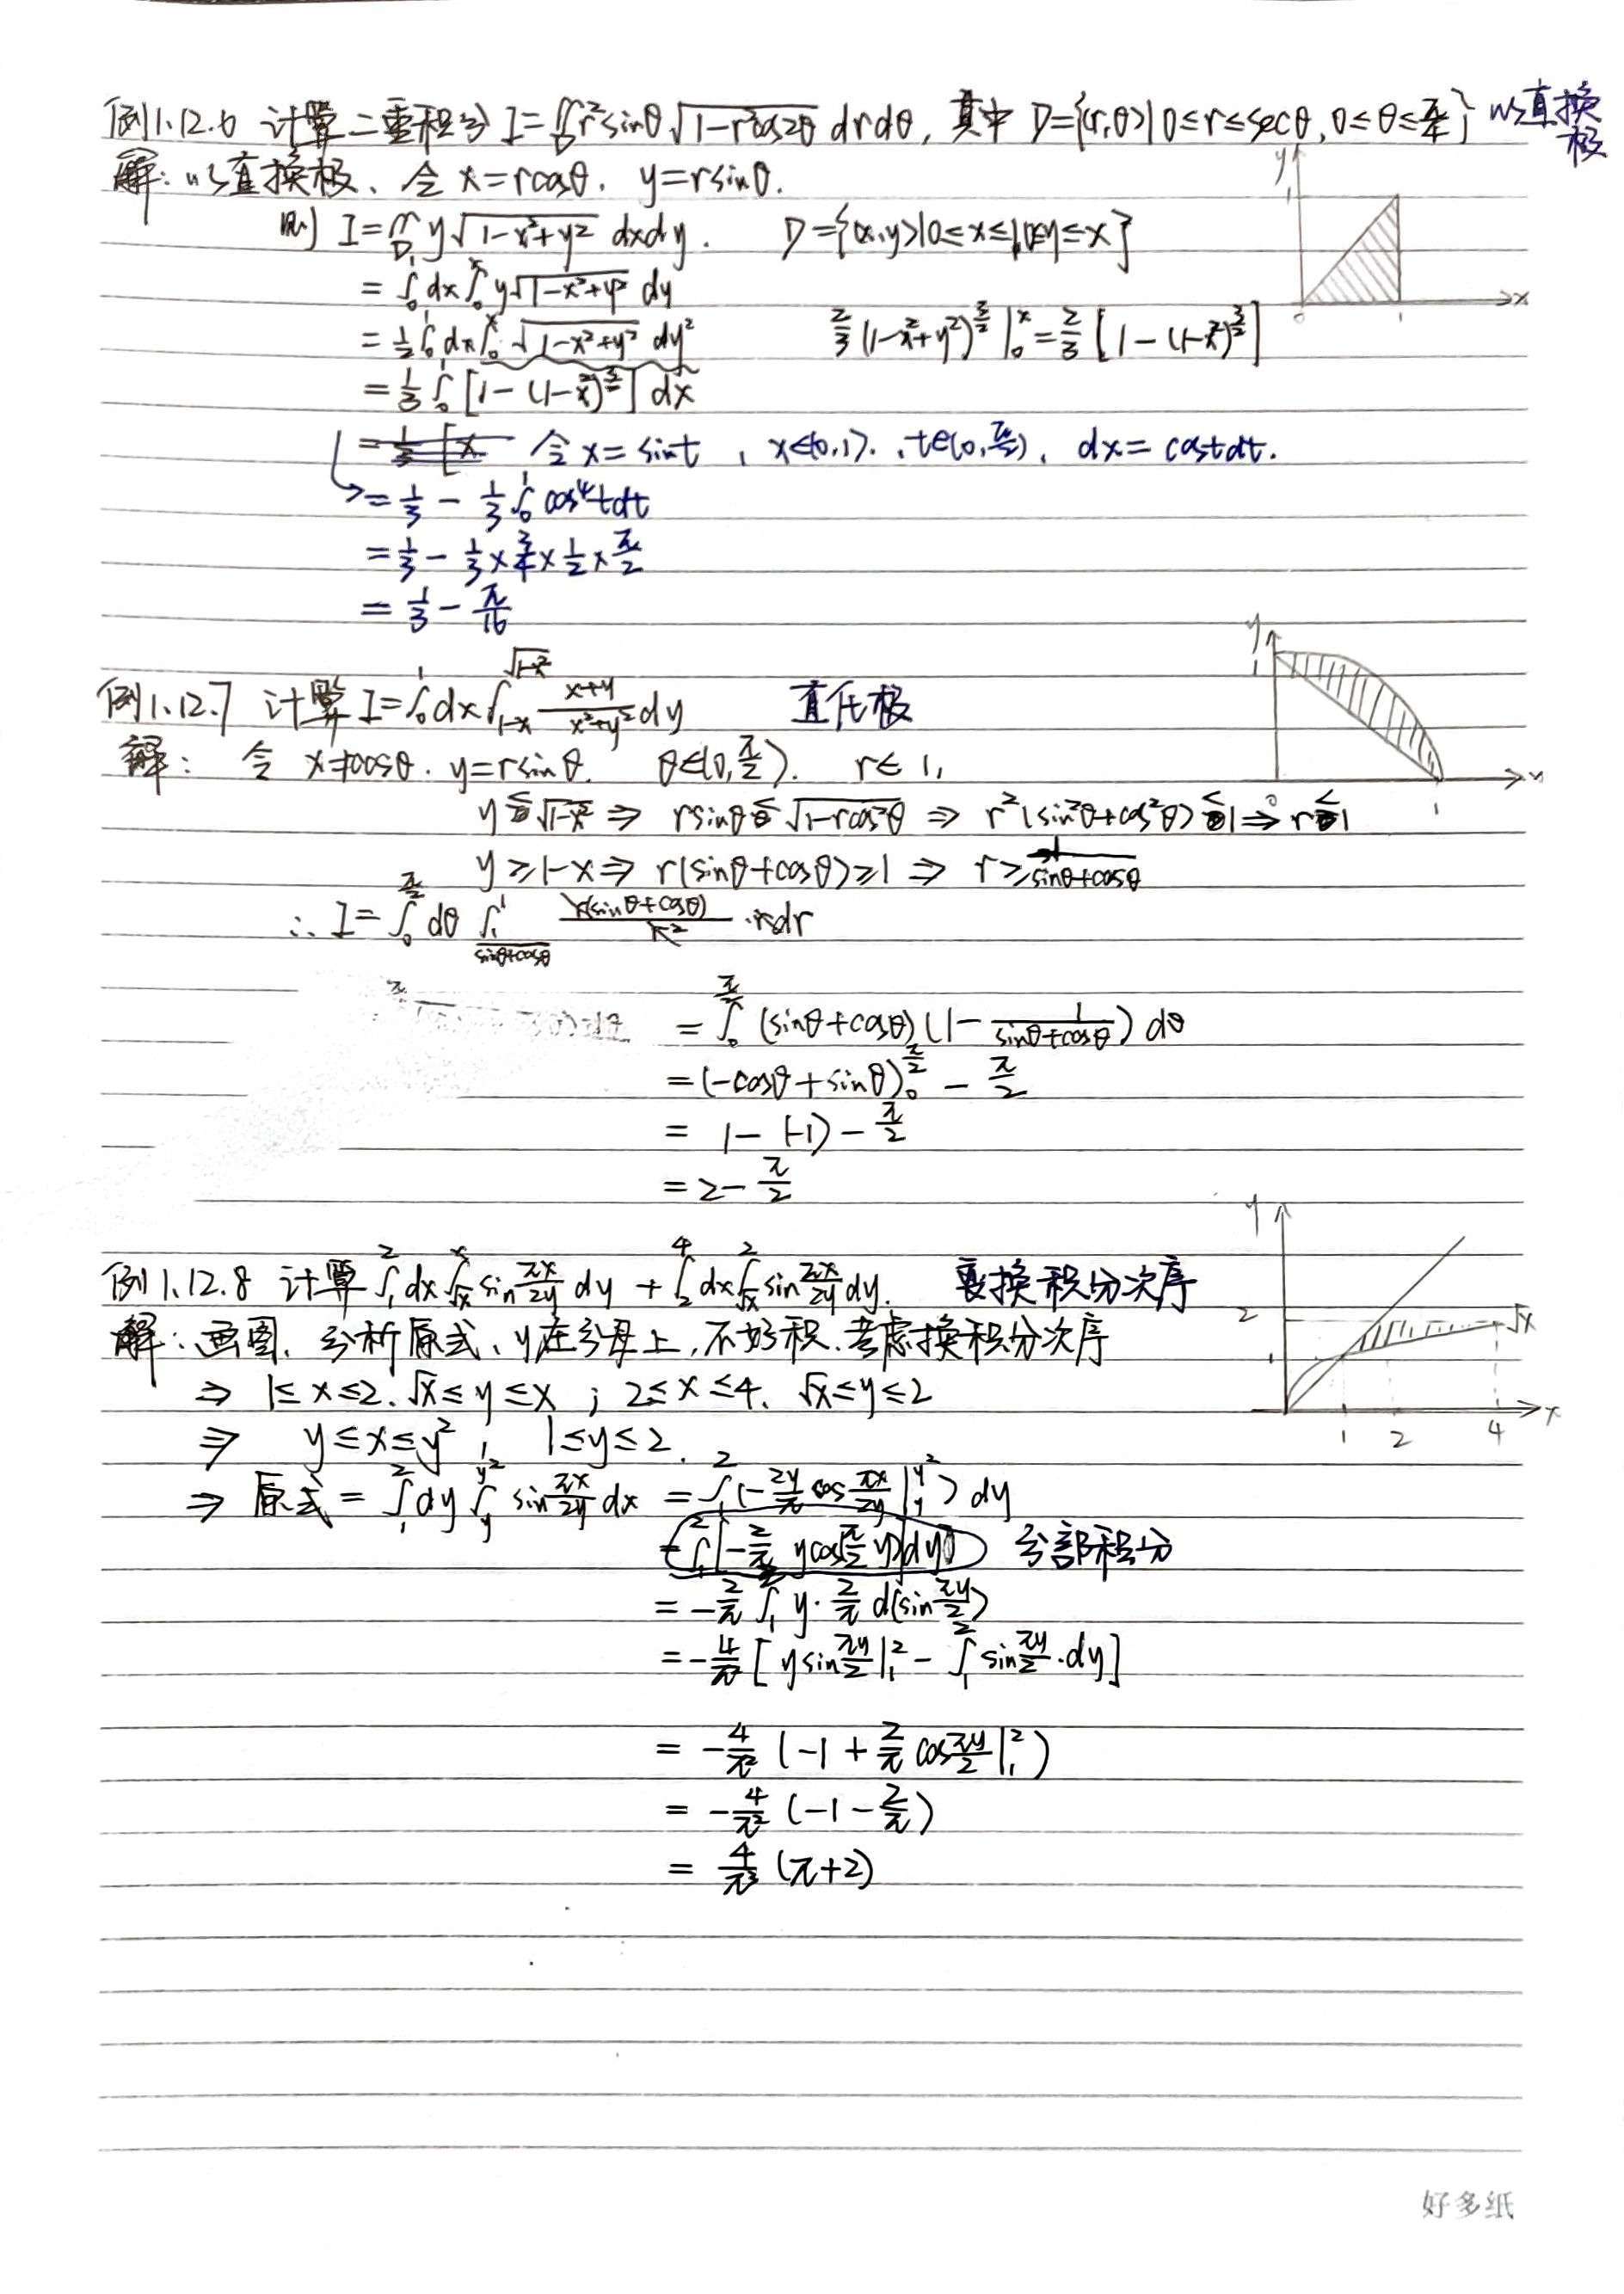 例1.12.6 计算二重积分 I=∬_D r²sinθ√(1-r²cos2θ) drdθ, 其中 D={(r,θ)|0≤r≤secθ, 0≤θ≤π/4} 以直换极
解: 以直换极、令 x=rcosθ. y=rsinθ.
则 I=∬_D y√(1-x²+y²) dxdy. D={(x,y)|0≤x≤1,0≤y≤x}
=∫_0^1 dx∫_0^x y√(1-x²+y²) dy
=1/2∫_0^1 dx∫_0^x √(1-x²+y²) dy² 2/3(1-x²+y²)^(3/2)|_0^x=2/3[1-(1-x²)^(3/2)]
=1/3∫_0^1 [1-(1-x²)^(3/2)] dx
令 x=sint, x∈(0,1). , t∈(0,π/2), dx=costdt.
=1/3 - 1/3∫_0^1 cos⁴tdt
=1/3 - 1/3×3/4×1/2×π/2
=1/3 - π/16
例1.12.7 计算 I=∫_0^1 dx∫_{1-x}^{√(1-x²)} (x+y)/(x²+y²) dy 直化极
解: 令 x=rcosθ. y=rsinθ. θ∈(0,π/2). r≤1,
y≤√(1-x²) ⇒ rsinθ≤√(1-rcos²θ) ⇒ r²(sin²θ+cos²θ)≤1⇒r≤1
y≥1-x⇒ r(sinθ+cosθ)≥1 ⇒ r≥1/(sinθ+cosθ)
∴ I=∫_0^{π/2} dθ ∫_{1/(sinθ+cosθ)}^1 r(sinθ+cosθ)/r² ·rdr
=∫_0^{π/2} (sinθ+cosθ)(1-1/(sinθ+cosθ)) dθ
=(-cosθ+sinθ)_0^{π/2} - π/2
= 1-(-1)-π/2
=2-π/2
例1.12.8 计算∫_1^2 dx∫_{√x}^x sin(πx/2y) dy + ∫_2^4 dx∫_{√x}^2 sin(πx/2y) dy. 更换积分次序
解: 画图、分析原式、y在分母上,不好积.考虑换积分次序
⇒ 1≤x≤2.√x≤y≤x ; 2≤x≤4、√x≤y≤2
⇒ y≤x≤y², 1≤y≤2.
⇒ 原式=∫_1^2 dy∫_y^{y²} sin(πx/2y) dx =∫_1^2 (-2y/π cos(πx/2y)|_y^{y²}) dy
=∫_1^2[-2/π ycos(π/2 y)]dy 分部积分
=-2/π∫_1^2 y·2/π d(sin(πy/2))
=-4/π²[ysin(πy/2)|_1^2-∫_1^2 sin(πy/2)·dy]
=-4/π²(-1+2/π cos(πy/2)|_1^2)
=-4/π²(-1-2/π)
=4/π³(π+2)
y
1
0
1
x
y
1
0
1
x
y
2
1
1
2
4
√x
x
好多纸